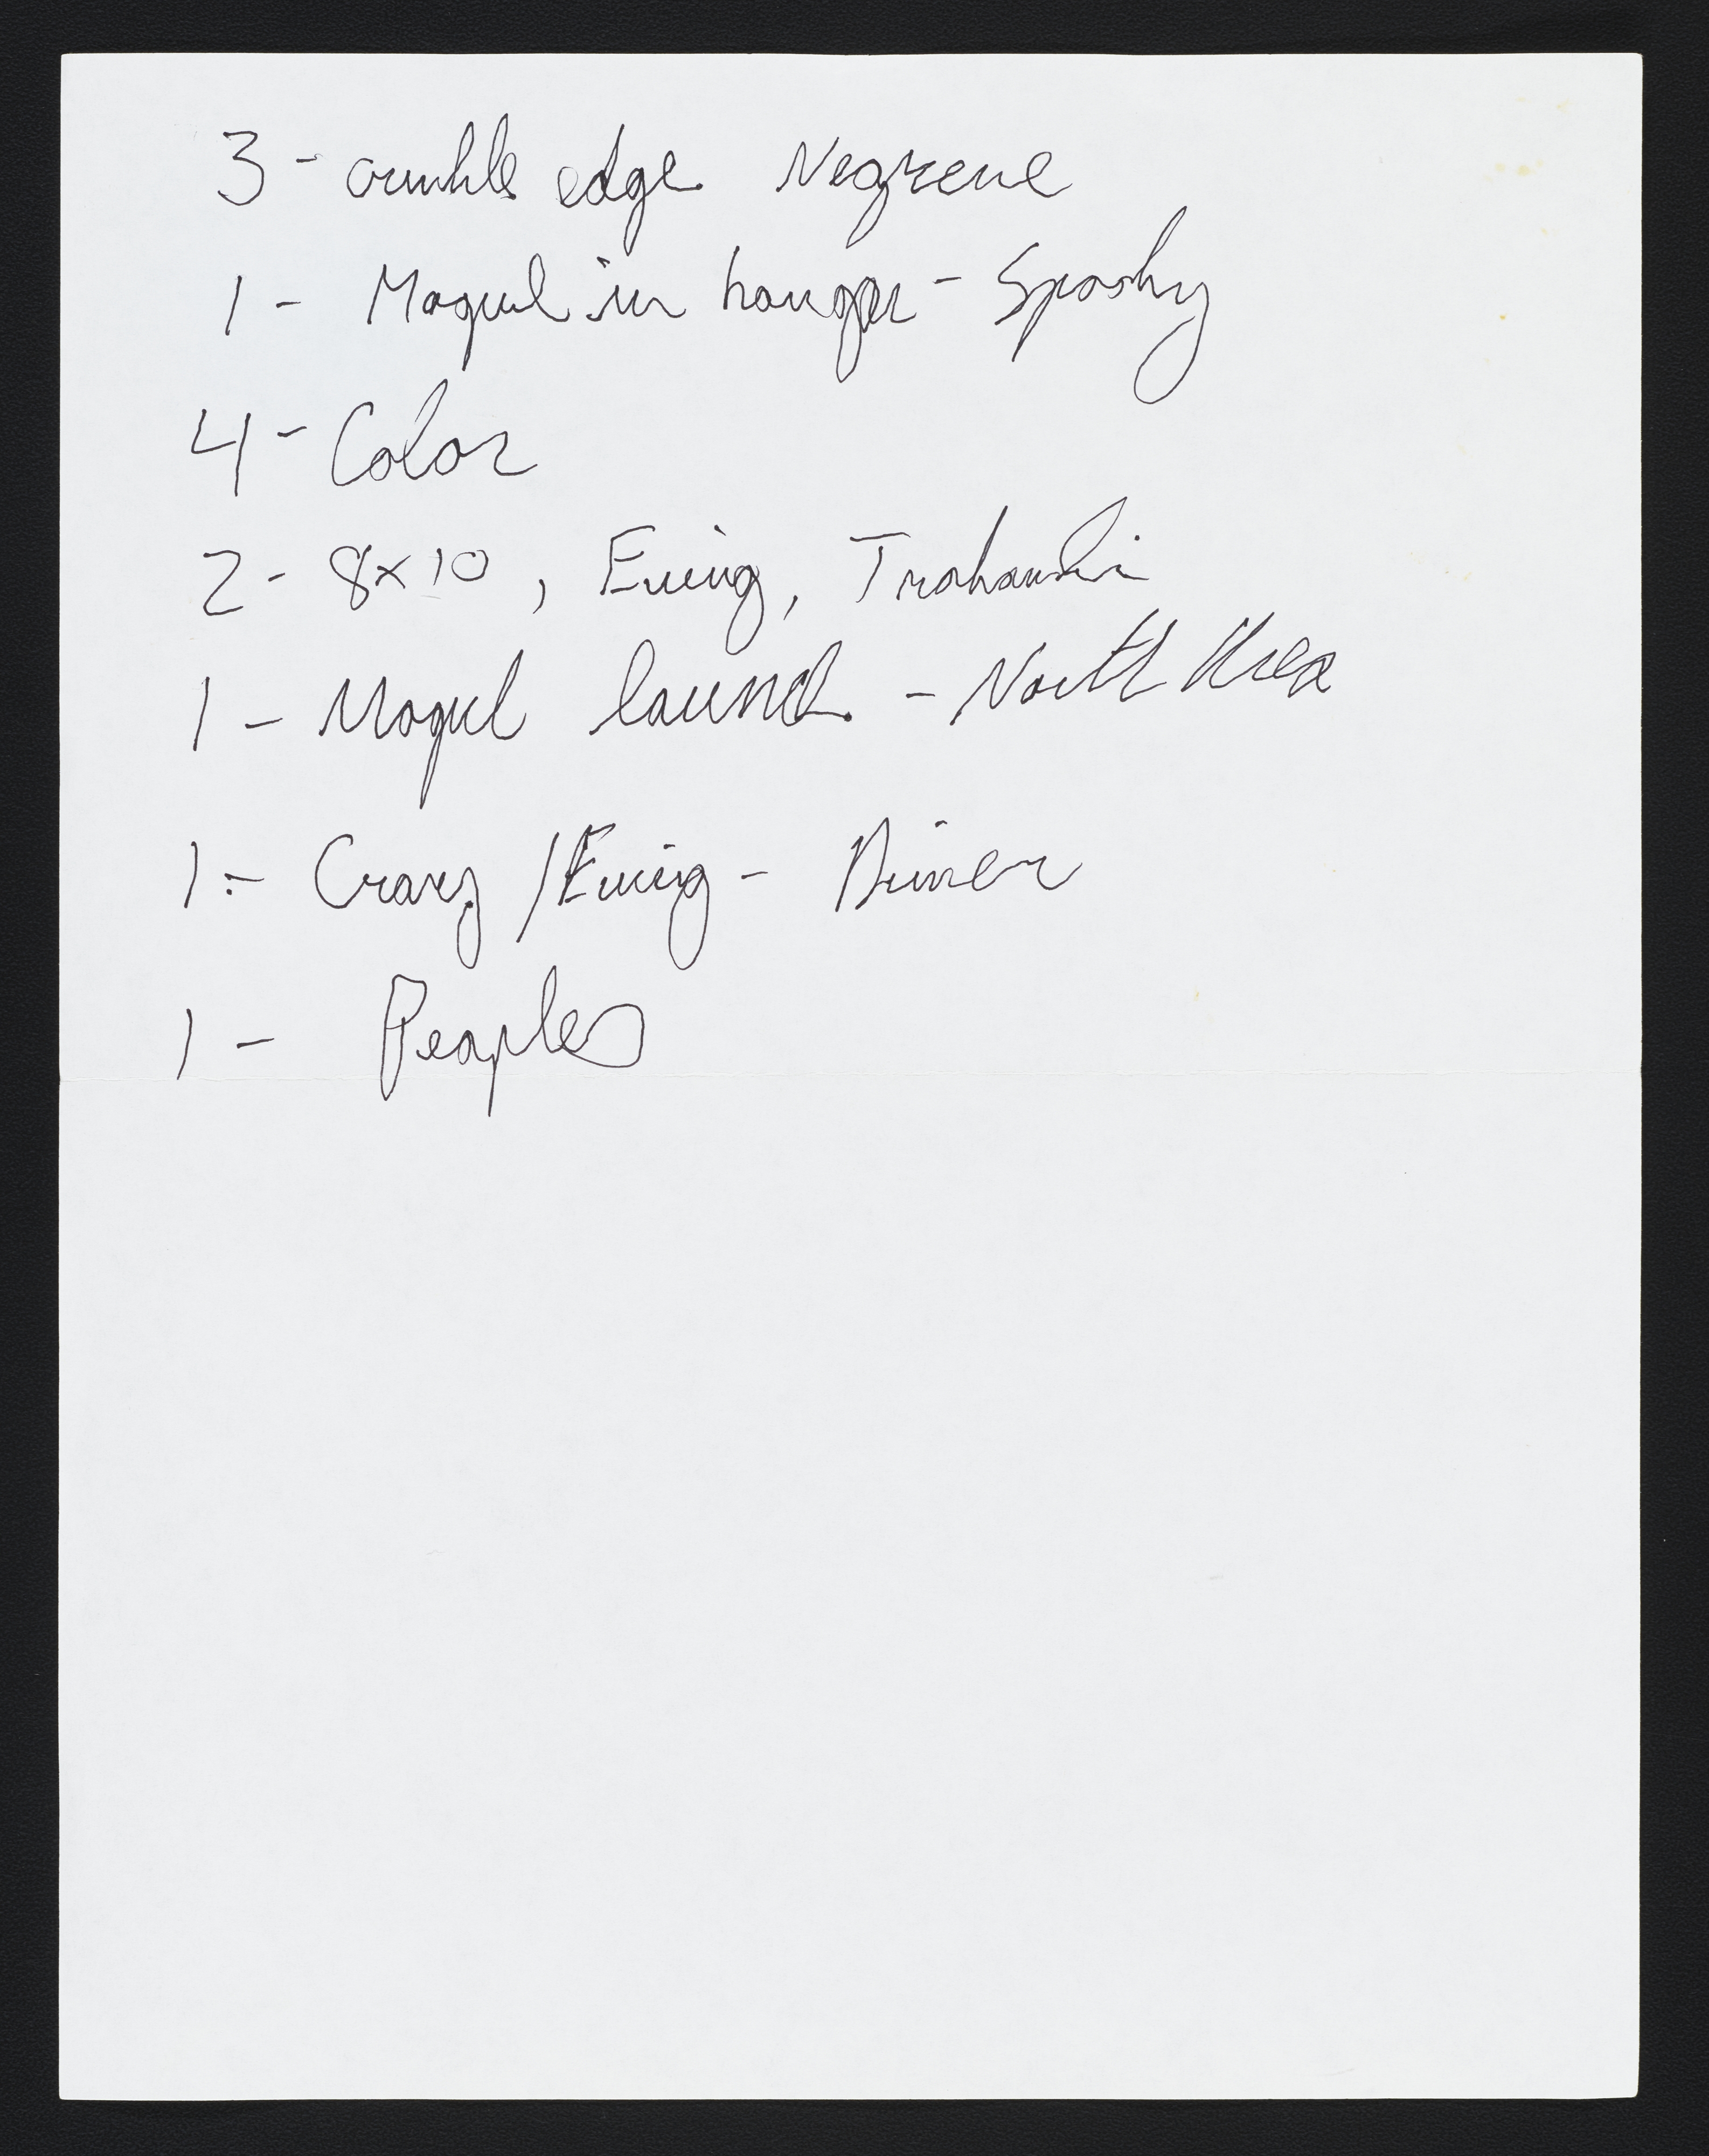 3 - crinkle edge Negrene
1 - Mogul in hangar - Spooky
4 - Color
2 - 8x10, Ewing,
1 - Mogul launch - North Area
1 - Crary / Ewing - Dinner
1 - Peoples